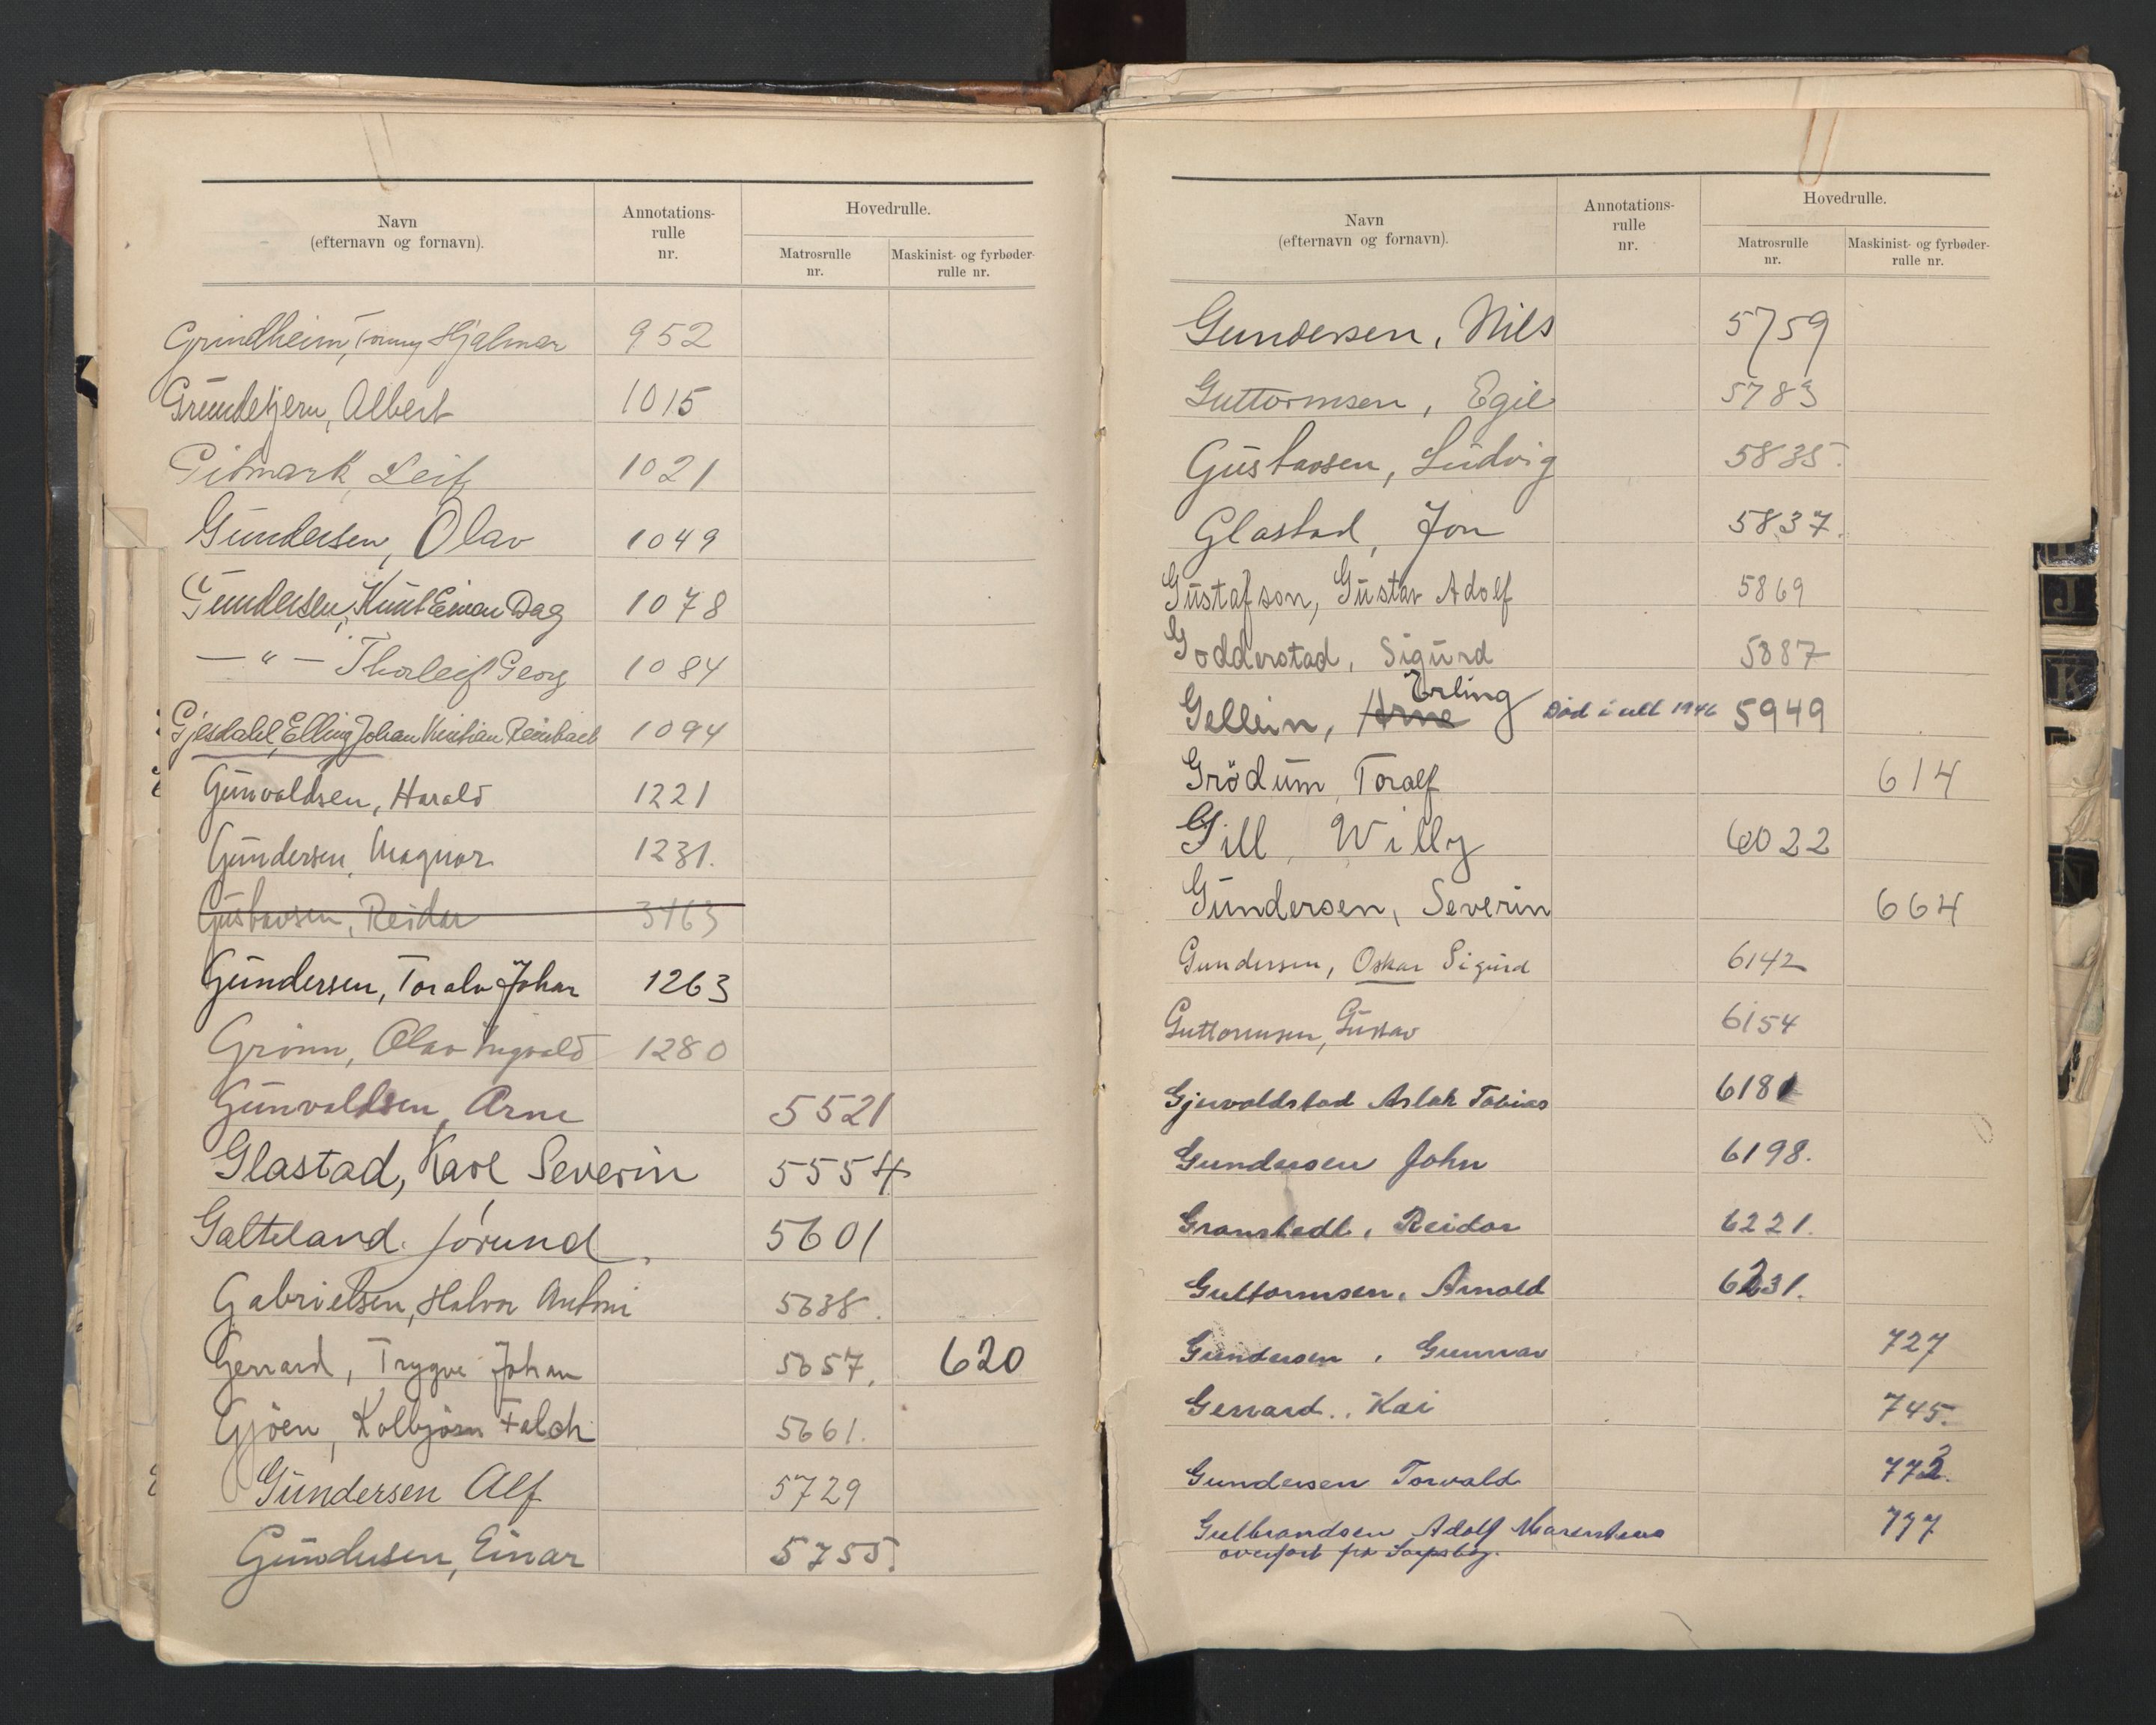 Navn
(efternavn og fornavn).
Annotations-
rulle
nr.
Hovedrulle.
Matrosrulle
nr.
Maskinist- og fyrbøder-
rulle nr.
Grindheim, Tommy Hjalmar 952
Grundetjern, Albert 1015
Gitmark, Leif 1021
Gundersen, Olav 1049
Gundersen, Knut Einar Dag 1078
— " — Thorleif Georg 1084
Gjesdahl, Elling Johan Kristian Reinback 1094
Gunvaldsen, Harald 1221
Gundersen, Magnar 1231.
Gustavsen, Reidar 3163
Gundersen, Toralv Johan 1263
Grönn, Olav Ingvald 1280
Gunvaldsen, Arne 5521
Glastad, Karl Severin 5554
Galteland. Jórund 5601
Gabrielsen, Halvor Antoni 5638.
Gerrard, Trygve Johan 5657. 620
Gjöen, Kolbjörn Falch 5661.
Gundersen Alf 5729
Gundersen, Einar 5755.
Navn
(efternavn og fornavn).
Annotations-
rulle
nr.
Hovedrulle.
Matrosrulle
nr.
Maskinist- og fyrbøder-
rulle nr.
Gundersen, Nils 5759
Guttormsen, Egil 5783
Gustavsen, Ludvig 5835.
Glastad, Jon 5837.
Gustafson, Gustav Adolf 5869
Godderstad, Sigurd 5887
Erling
Gellein, Arne Død i utl 1946 5949
Grödum, Toralf 614
Gill, Willy 6022
Gundersen, Severin 664
Gundersen, Oskar Sigurd 6142
Guttormsen, Gustav 6154
Gjuvoldstad Aslak Tobias 6181
Gundersen John 6198.
Granstedt, Reidar 6221.
Guttormsen, Arnold 6231.
Gundersen, Gunnar 727
Gerrard., Kai 745.
Gundersen Torvald 772.
Gulbrandsen, Adolf 777
overført fra Sarpsbg.